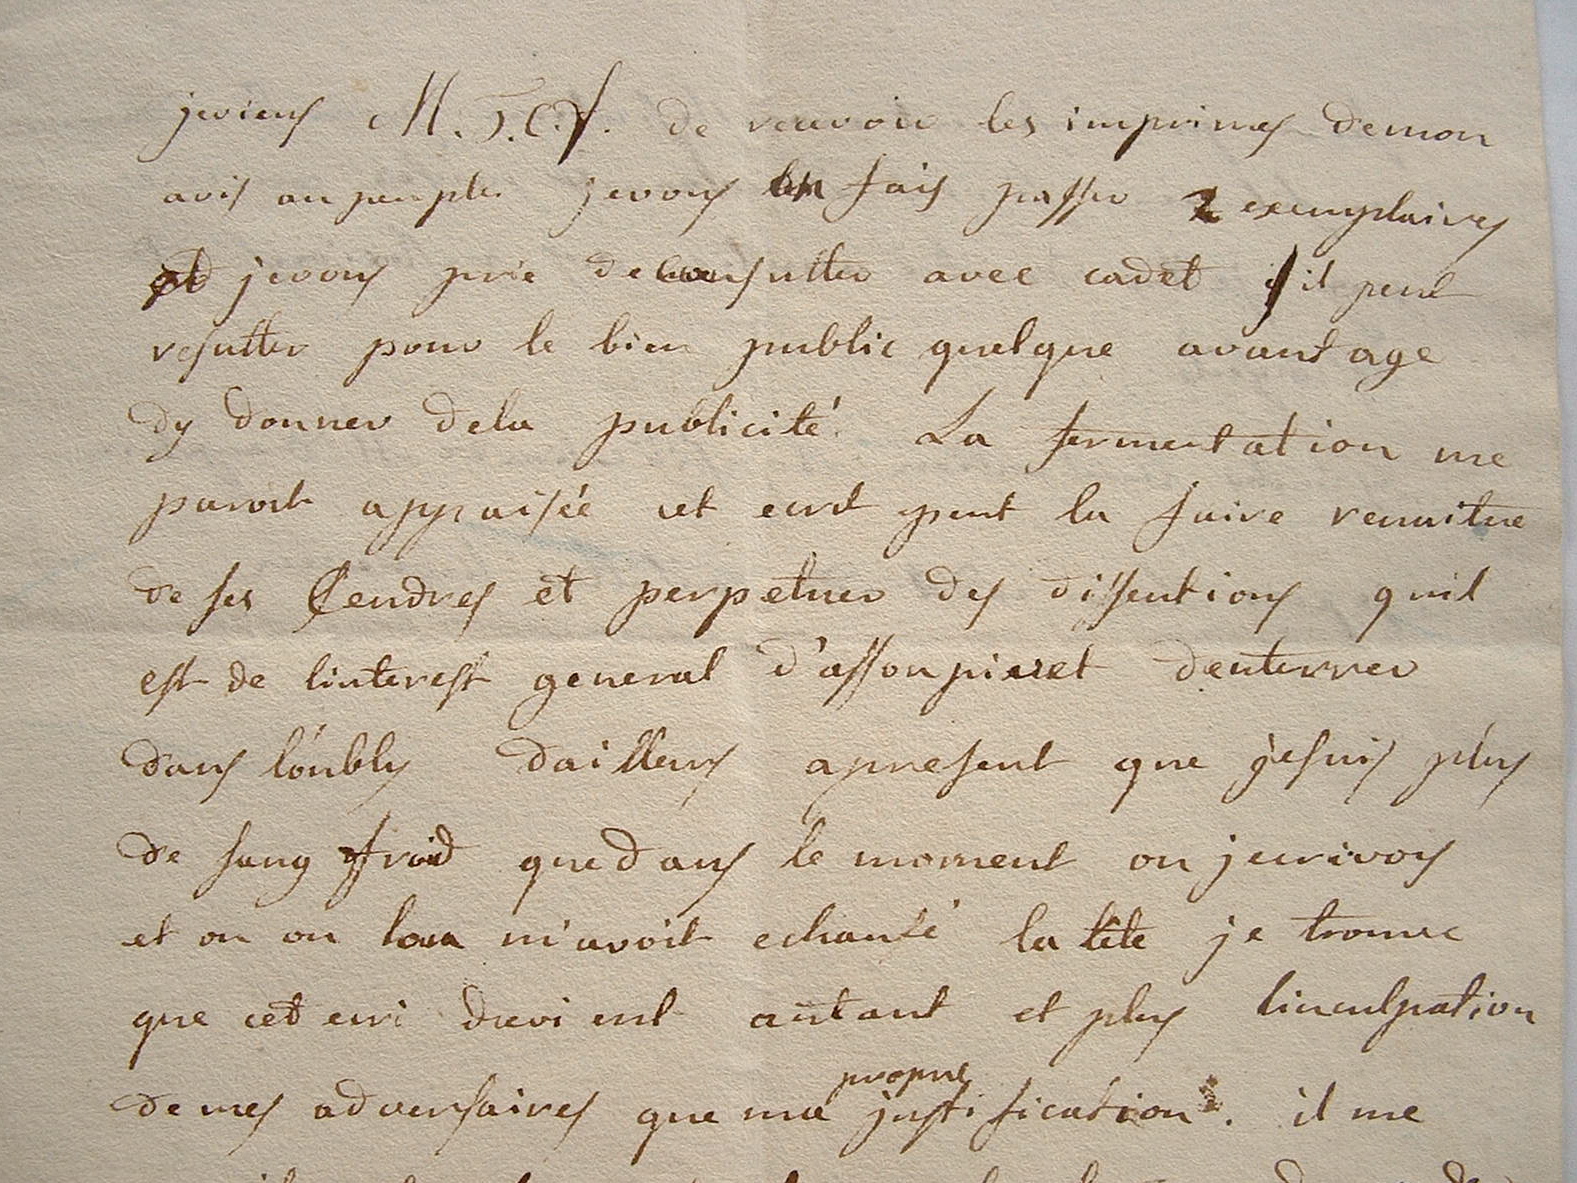 jeviens M. T. C. f. de recevoir les imprimes demon
avis au peuple jevous en fais passer 2 exemplaires
et jevous prie deconsulter avec cadet s'il peut
resulter pour le bien public quelque avantage
dy donner dela publicité. La fermentation me
paroit appaisée cet ecrit peut la faire renaitre
de ses Cendres et perpetuer des dissentions quil
est de linterest general d'assoupir et denterrer
dans l'oubly dailleurs apresent que jesuis plus
de sang froid quedans le moment ou jecrivois
et ou on m'avoit echaufé la tête je trouve
que cet ecri devient autant et plus linculpation
demes adversaires que ma propre justification. il me